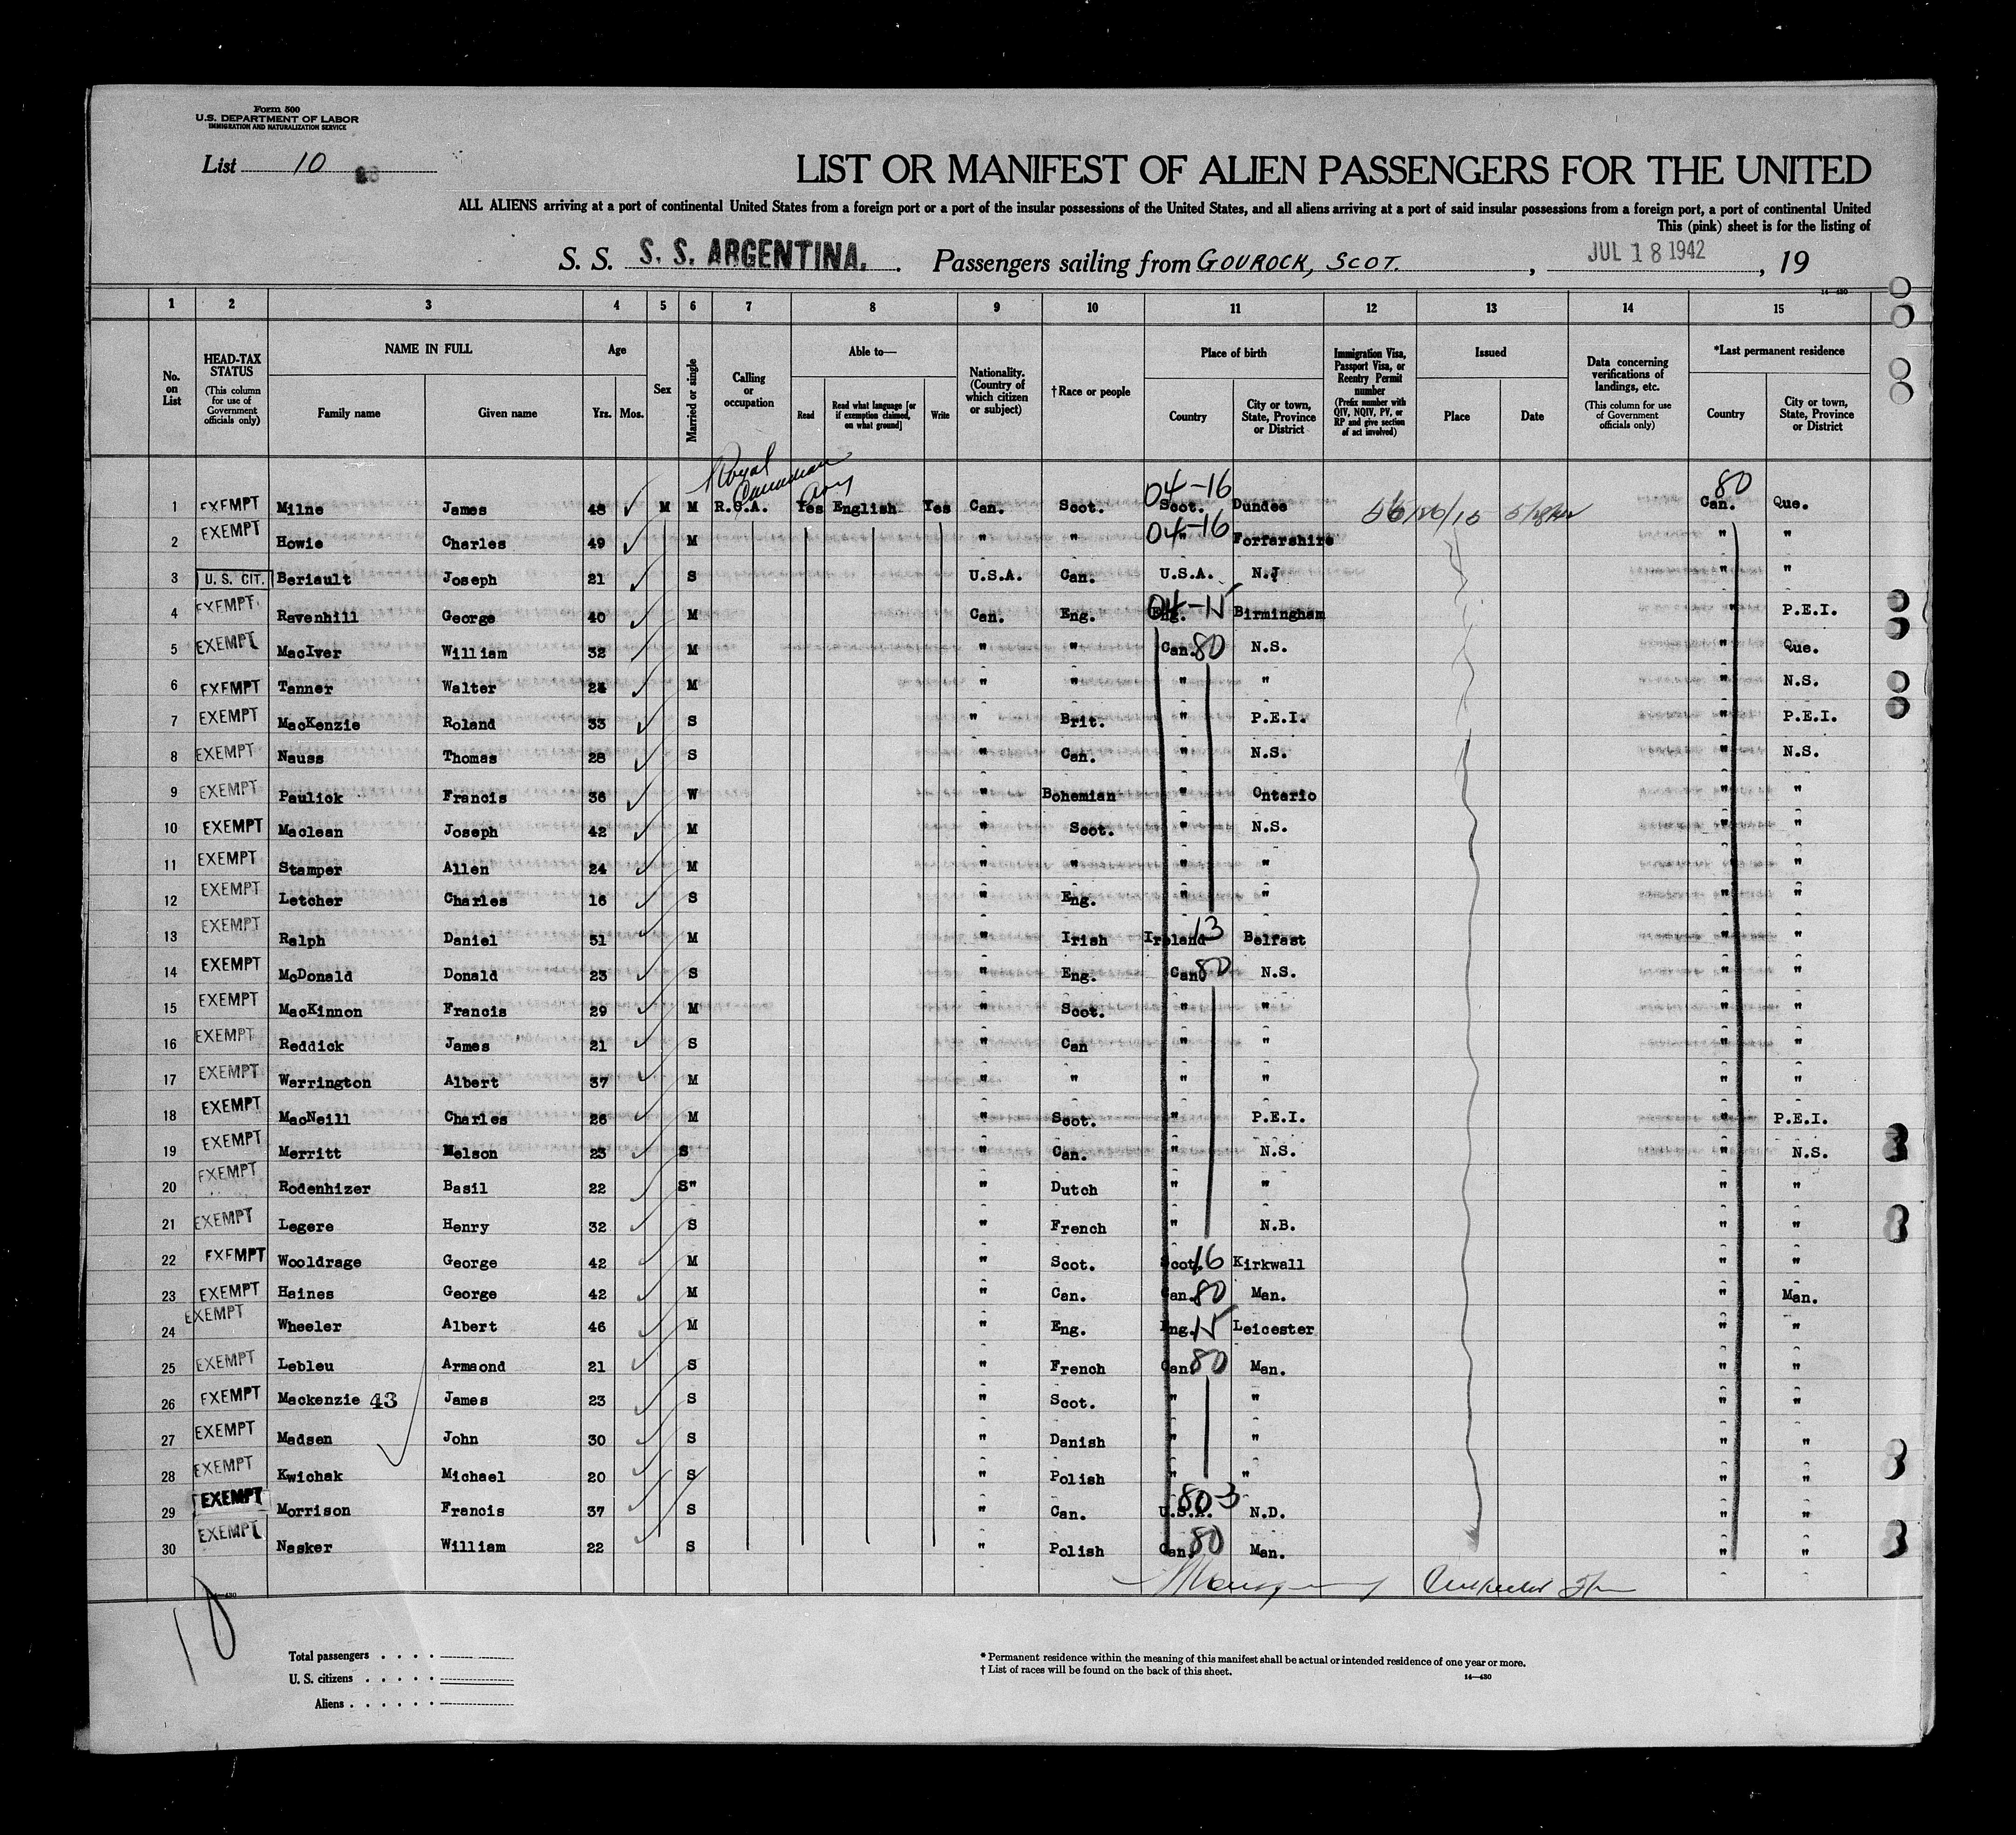 Form 500
U.S. DEPARTMENT OF LABOR
IMMIGRATION AND NATURALIZATION SERVICE
List 10
LIST OR MANIFEST OF ALIEN PASSENGERS FOR THE UNITED
ALL ALIENS arriving at a port of continental United States from a foreign port or a port of the insular possessions of the United States, and all aliens arriving at a port of said insular possessions from a foreign port, a port of continental United
This (pink) sheet is for the listing of
S. S. S. S. ARGENTINA. Passengers sailing from GOUROCK, SCOT. , JUL 18 1942 , 19
14—430
1 2 3 4 5 6 7 8 9 10 11 12 13 14 15
No. on List
HEAD-TAX STATUS (This column for use of Government officials only)
NAME IN FULL
Family name Given name
Age
Yrs. Mos.
Sex
Married or single
Calling or occupation
Able to—
Read
Read what language [or if exemption claimed, on what ground]
Write
Nationality. (Country of which citizen or subject)
† Race or people
Place of birth
Country
City or town, State, Province or District
Immigration Visa, Passport Visa, or Reentry Permit number (Prefix number with QIV, NQIV, PV, or RP and give section of act involved)
Issued
Place Date
Data concerning verifications of landings, etc. (This column for use of Government officials only)
*Last permanent residence
Country
City or town, State, Province or District
Royal Canadian
04-16 80
1 EXEMPT Milne James 48 M M R.C.A. Yes English Yes Can. Scot. Scot. Dundee Can. Que.
2 EXEMPT Howie Charles 49 M " " 04-16 " Forfarshire " "
3 U. S. CIT. Beriault Joseph 21 S U.S.A. Can. U.S.A. N.J " "
4 EXEMPT Ravenhill George 40 M Can. Eng. 04-15 Eng. Birmingham " P.E.I.
5 EXEMPT MacIver William 32 M " " Can. 80 N.S. " Que.
6 EXEMPT Tanner Walter 24 M " " " " " N.S.
7 EXEMPT MacKenzie Roland 33 S " Brit. " P.E.I. " P.E.I.
8 EXEMPT Nauss Thomas 28 S " Can. " N.S. " N.S.
9 EXEMPT Paulick Francis 36 W " Bohemian " Ontario " "
10 EXEMPT Maclean Joseph 42 M " Scot. " N.S. " "
11 EXEMPT Stamper Allen 24 M " " " " " "
12 EXEMPT Letcher Charles 16 S " Eng. " " " "
13 EXEMPT Ralph Daniel 51 M " Irish Ireland 13 Belfast " "
14 EXEMPT McDonald Donald 23 S " Eng. Can. 80 N.S. " "
15 EXEMPT MacKinnon Francis 29 M " Scot. " " " "
16 EXEMPT Reddick James 21 S " Can " " " "
17 EXEMPT Warrington Albert 37 M " " " " " "
18 EXEMPT MacNeill Charles 26 M " Scot. " P.E.I. " P.E.I.
19 EXEMPT Merritt Nelson 23 S " Can. " N.S. " N.S.
20 EXEMPT Rodenhizer Basil 22 S" " Dutch " " " "
21 EXEMPT Legere Henry 32 S " French " N.B. " "
22 EXEMPT Wooldrage George 42 M " Scot. Scot. 16 Kirkwall " "
23 EXEMPT Haines George 42 M " Can. Can. 80 Man. " Man.
24 EXEMPT Wheeler Albert 46 M " Eng. Eng. 15 Leicester " "
25 EXEMPT Lebleu Armaond 21 S " French Can. 80 Man. " "
26 EXEMPT Mackenzie 43 James 23 S " Scot. " " " "
27 EXEMPT Madsen John 30 S " Danish " " " "
28 EXEMPT Kwichak Michael 20 S " Polish " " " "
29 EXEMPT Morrison Francis 37 S " Can. 80-3 U.S.A. N.D. " "
30 EXEMPT Nasker William 22 S " Polish Can. 80 Man. " "
10
Total passengers . . . .
U. S. citizens . . . . .
Aliens . . . . . .
* Permanent residence within the meaning of this manifest shall be actual or intended residence of one year or more.
† List of races will be found on the back of this sheet.
14—430